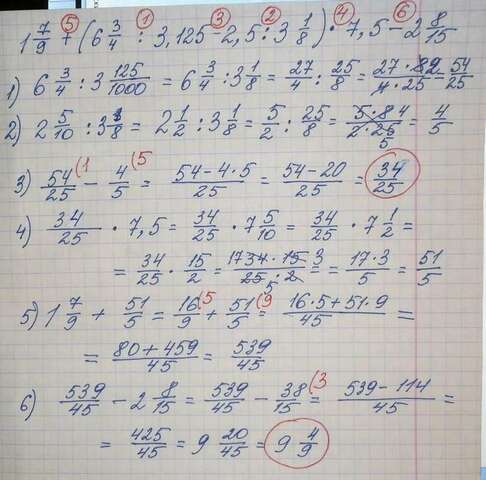 ⑤ ① ③ ② ④ ⑥
1 7/9 + (6 3/4 : 3,125 - 2,5 : 3 1/8) · 7,5 - 2 8/15
1) 6 3/4 : 3 125/1000 = 6 3/4 : 3 1/8 = 27/4 : 25/8 = 27 · 8 2/4 · 25 = 54/25
2) 2 5/10 : 3 1/8 = 2 1/2 : 3 1/8 = 5/2 : 25/8 = 5 · 8 4/2 · 25 5 = 4/5
3) 54/25 (1 - 4/5 (5 = 54-4·5/25 = 54-20/25 = 34/25
4) 34/25 · 7,5 = 34/25 · 7 5/10 = 34/25 · 7 1/2 =
= 34/25 · 15/2 = 17 34 · 15 3/25 5 · 2 = 17·3/5 = 51/5
5) 1 7/9 + 51/5 = 16/9 (5 + 51/5 (9 = 16·5+51·9/45 =
= 80+459/45 = 539/45
6) 539/45 - 2 8/15 = 539/45 - 38/15 (3 = 539-114/45 =
= 425/45 = 9 20/45 = 9 4/9